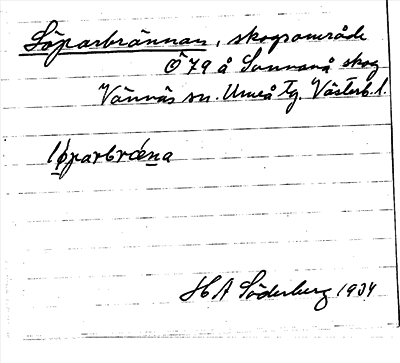 Löparbrännan, skogsområde
Ö 79 å Sunnanå skog
Vännäs sn. Umeå tg. Västerb. l.
löparbræna
H A Söderberg 1934